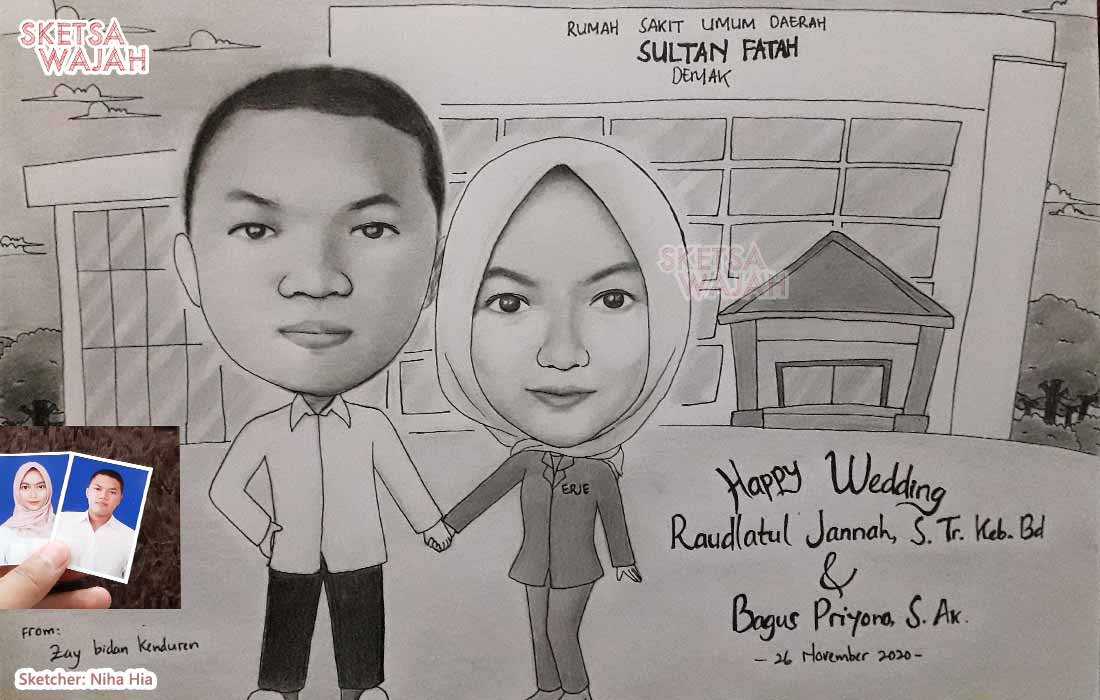 SKETSA
WAJAH
RUMAH SAKIT UMUM DAERAH
SULTAN FATAH
DEMAK
SKETSA
WAJAH
ERJE
Happy Wedding
Raudlatul Jannah, S. Tr. Keb. Bd
&
Bagus Priyono, S. Ak.
- 26 November 2020 -
From:
Zay bidan Kenduren
Sketcher: Niha Hia